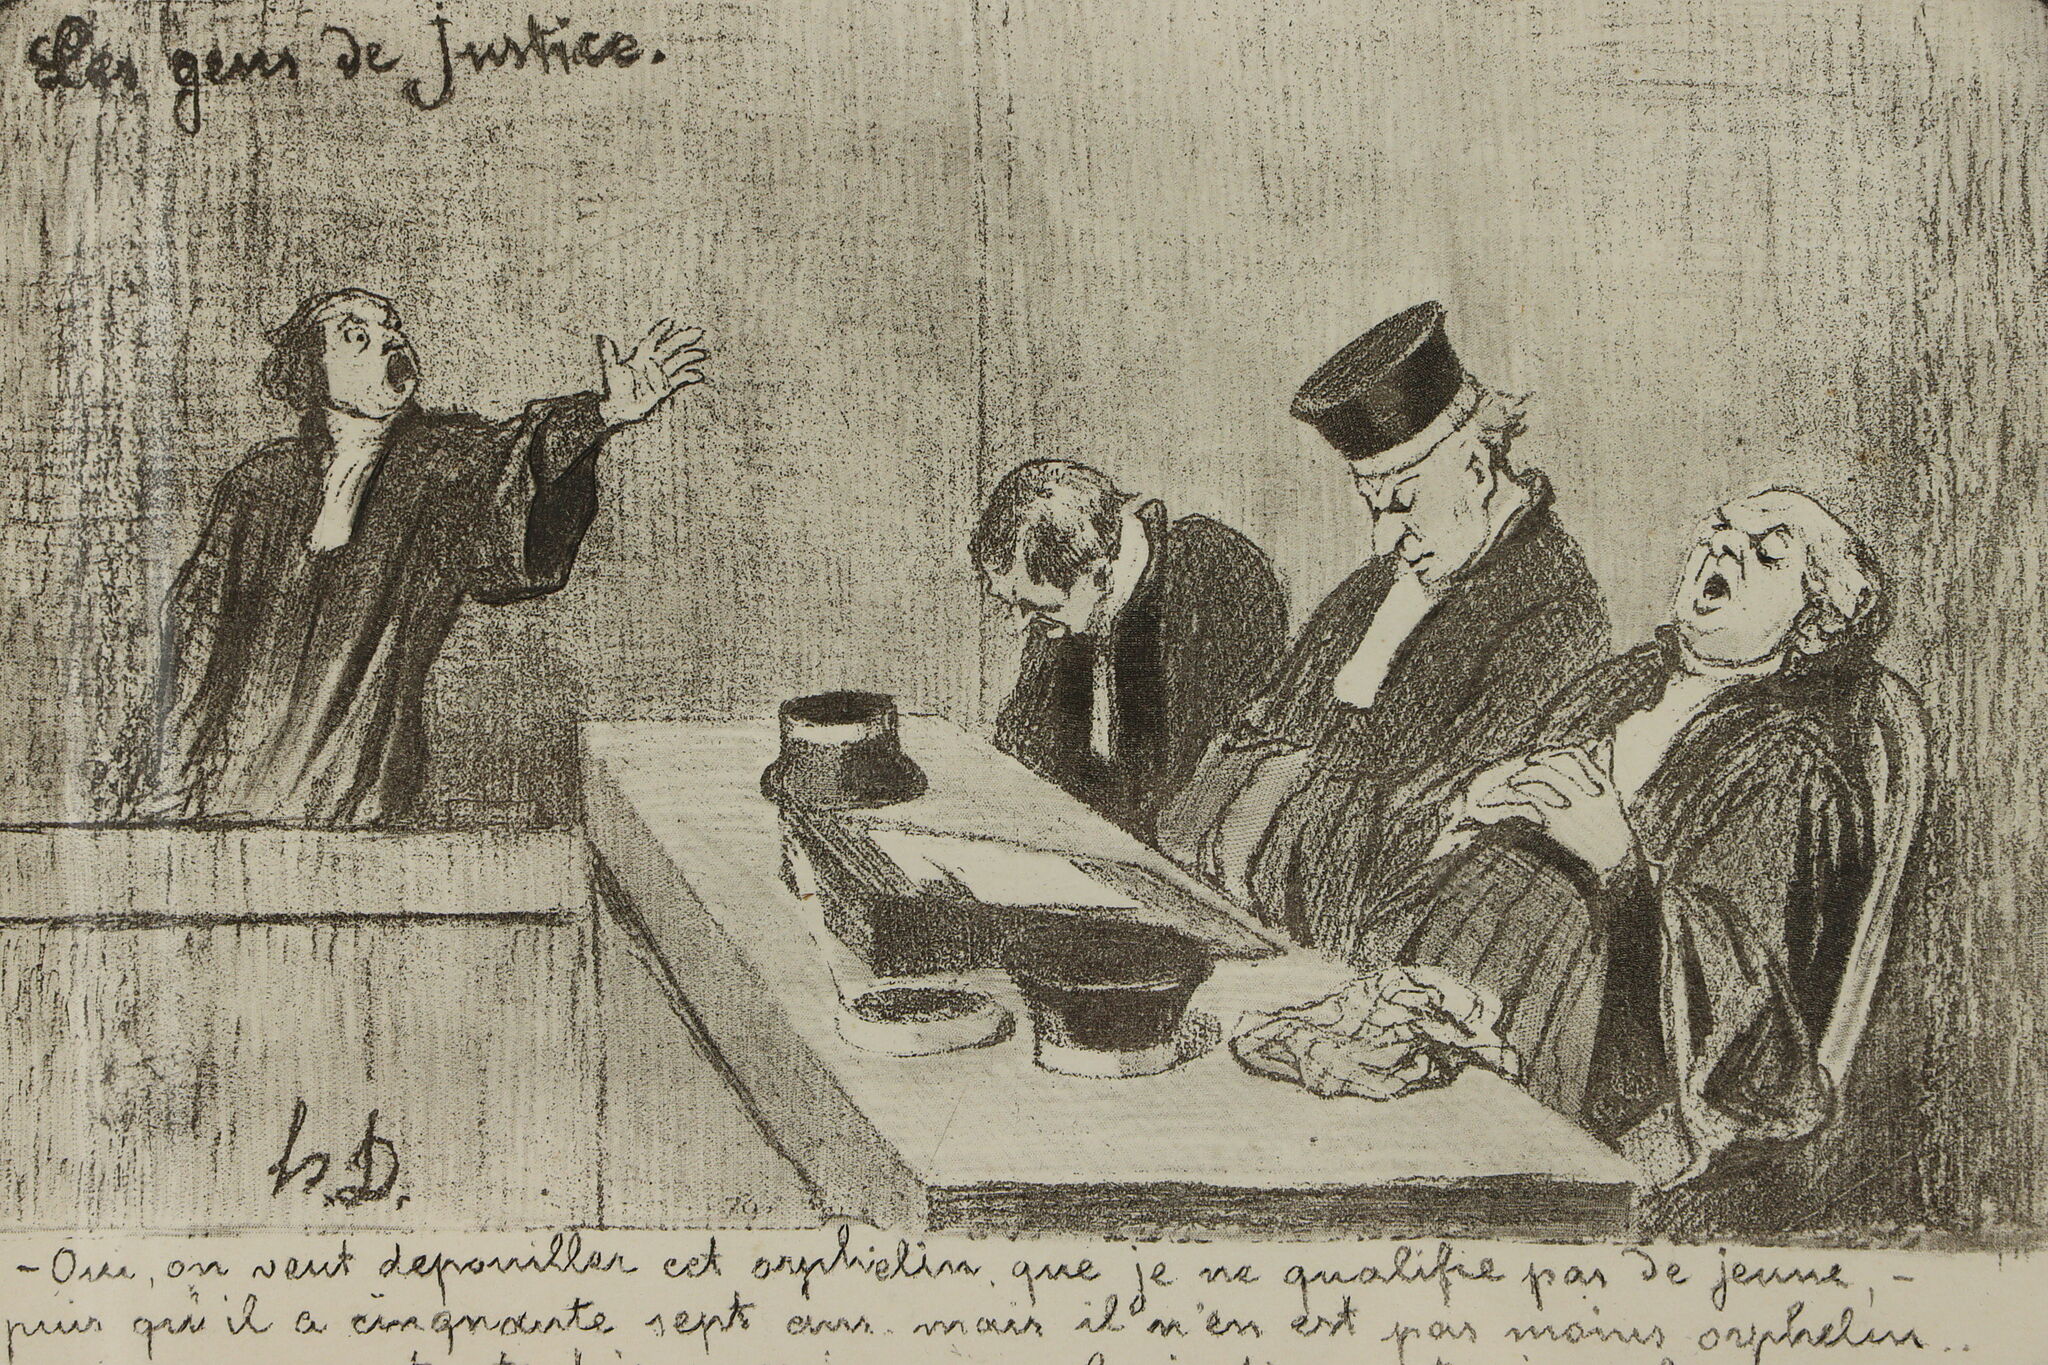 Les gens de justice.
h.D.
- Oui, on veut depouiller cet orphelin, que je ne qualifie pas de jeune, -
puis qu'il a cinquante sept ans, mais il n'en est pas moins orphelin..